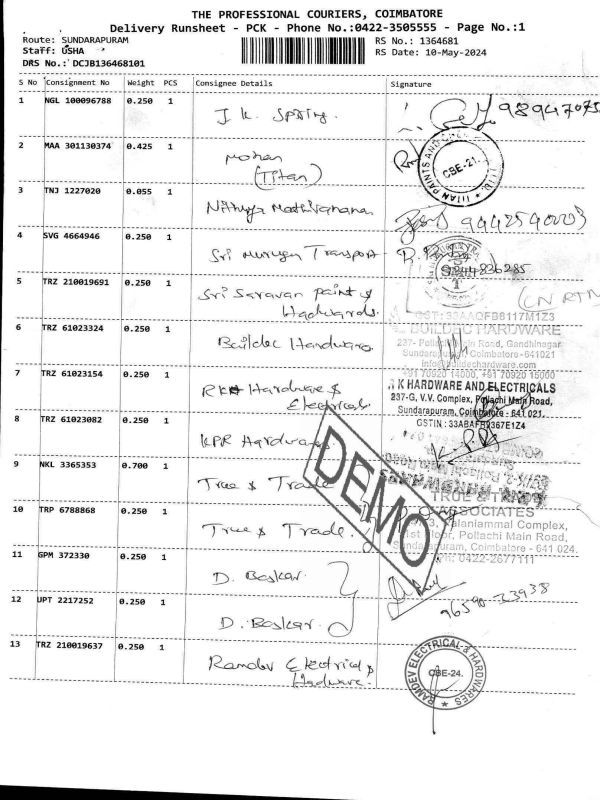 THE PROFESSIONAL COURIERS, COIMBATORE
Delivery Runsheet - PCK - Phone No.:0422-3505555 - Page No.:1
Route: SUNDARAPURAM
Staff: USHA
DRS No.: DCJB136468101
RS No.: 1364681
RS Date: 10-May-2024
S No Consignment No Weight PCS Consignee Details Signature
1 NGL 100096788 0.250 1 J.K. Spring.
2 MAA 301130374 0.425 1 Mohan (Titan)
CBE-21.
3 TNJ 1227020 0.055 1 Nithya Mathivanan 9442540003
4 SVG 4664946 0.250 1 Sri Murugan Transport
9244836285
5 TRZ 210019691 0.250 1 Sri Saravan Paint & Hadwards.
GST: 33AAQFB8117M1Z3
BUILDEC HARDWARE
237- Pollachi Main Road, Gandhinagar
Sundarapuram, Coimbatore -641021
info@buildechardware.com
+91 70920 14000, +91 70920 15000
6 TRZ 61023324 0.250 1 Buildec Hardware
7 TRZ 61023154 0.250 1 RK Hardware & Electricals
K HARDWARE AND ELECTRICALS
237-G, V.V. Complex, Pollachi Main Road,
Sundarapuram, Coimbatore - 641 021.
8 TRZ 61023082 0.250 1 KPR Hardwares
9 NKL 3365353 0.700 1 True & Trade
DEMO
10 TRP 6788868 0.250 1 True & Trade.
ASSOCIATES
Palaniammal Complex,
1st Floor, Pollachi Main Road,
Sundarapuram, Coimbatore - 641 024.
PH: 0422-2677111
11 GPM 372330 0.250 1 D. Baskar.
12 UPT 2217252 0.250 1 D. Baskar.
13 TRZ 210019637 0.250 1 Ramdev Electrical & Hadware.
RAMDEV ELECTRICAL & HARDWARES
CBE-24.